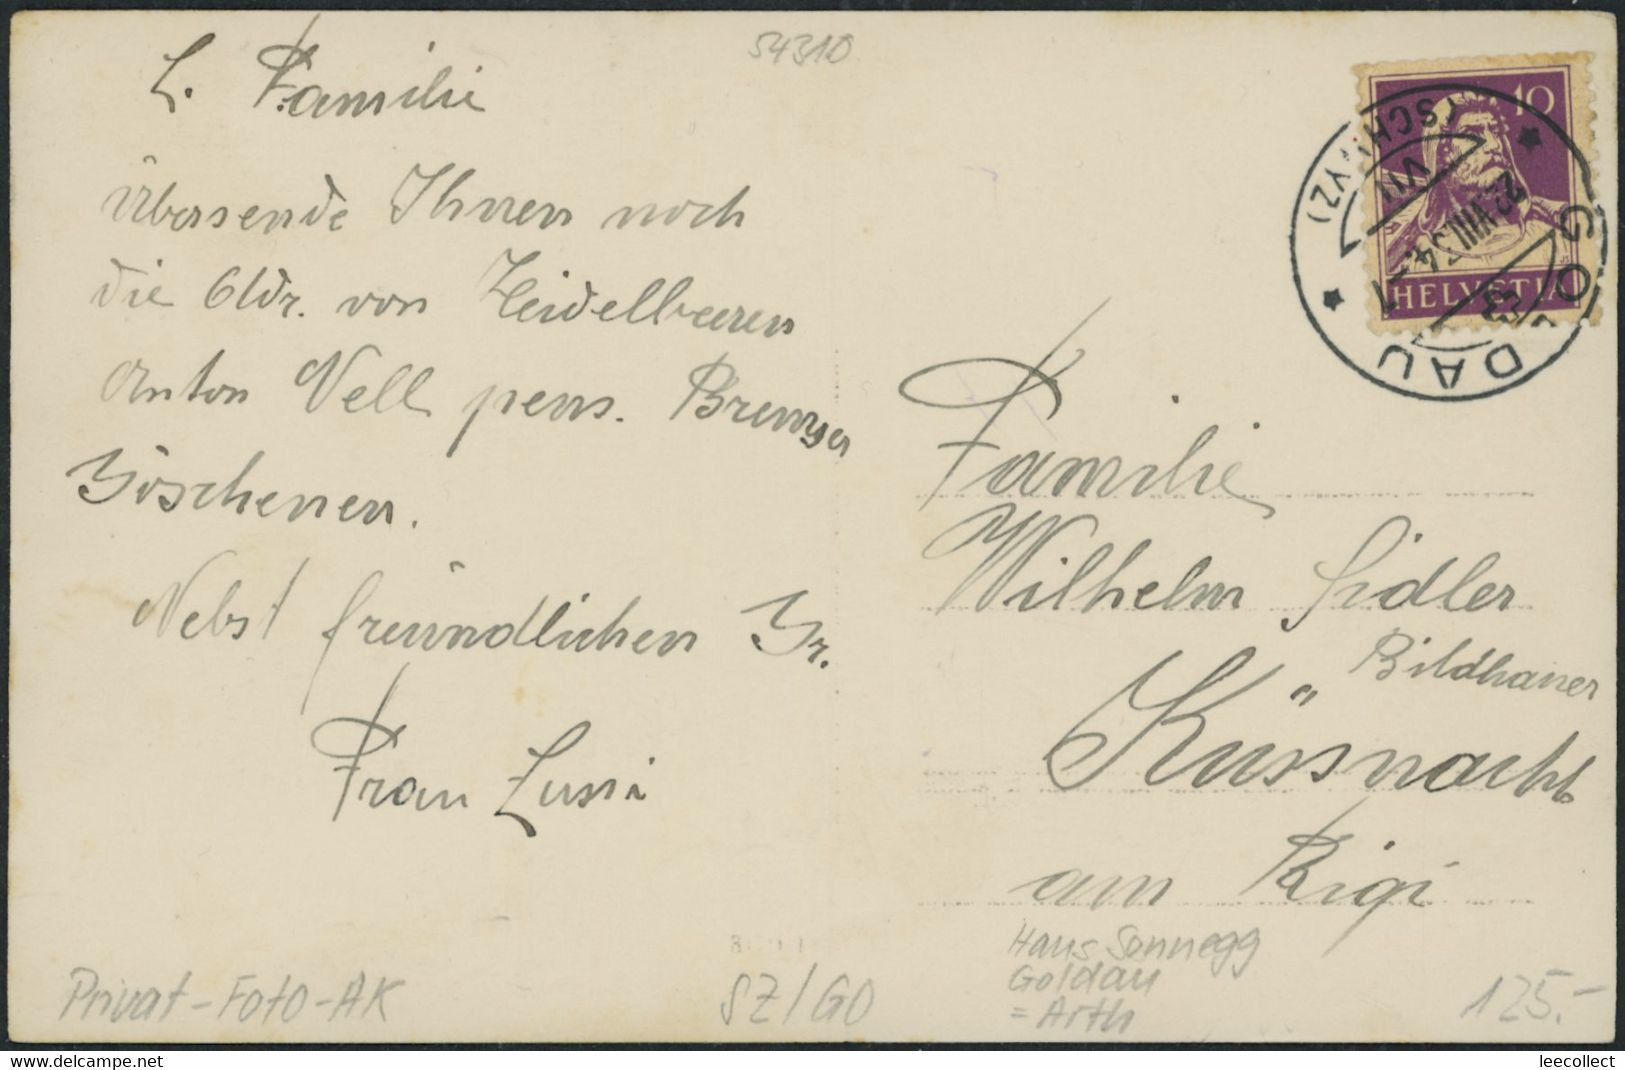 54310
L. Familie
Übersende Ihnen noch
die Oldr. von Heidelbeeren
Anton Nell pens. Bremser
Göschenen.
Nebst freundlichen Gr.
Frau Lussi
10
HELVETIA
GOLDAU
(SCHWYZ)
VIII
Familie
Wilhelm Sidler
Bildhauer
Küssnacht
am Rigi
Privat-Foto-AK
SZ/GO
Haus Sonnegg
Goldau
= Arth
125.-
www.delcampe.net
leecollect